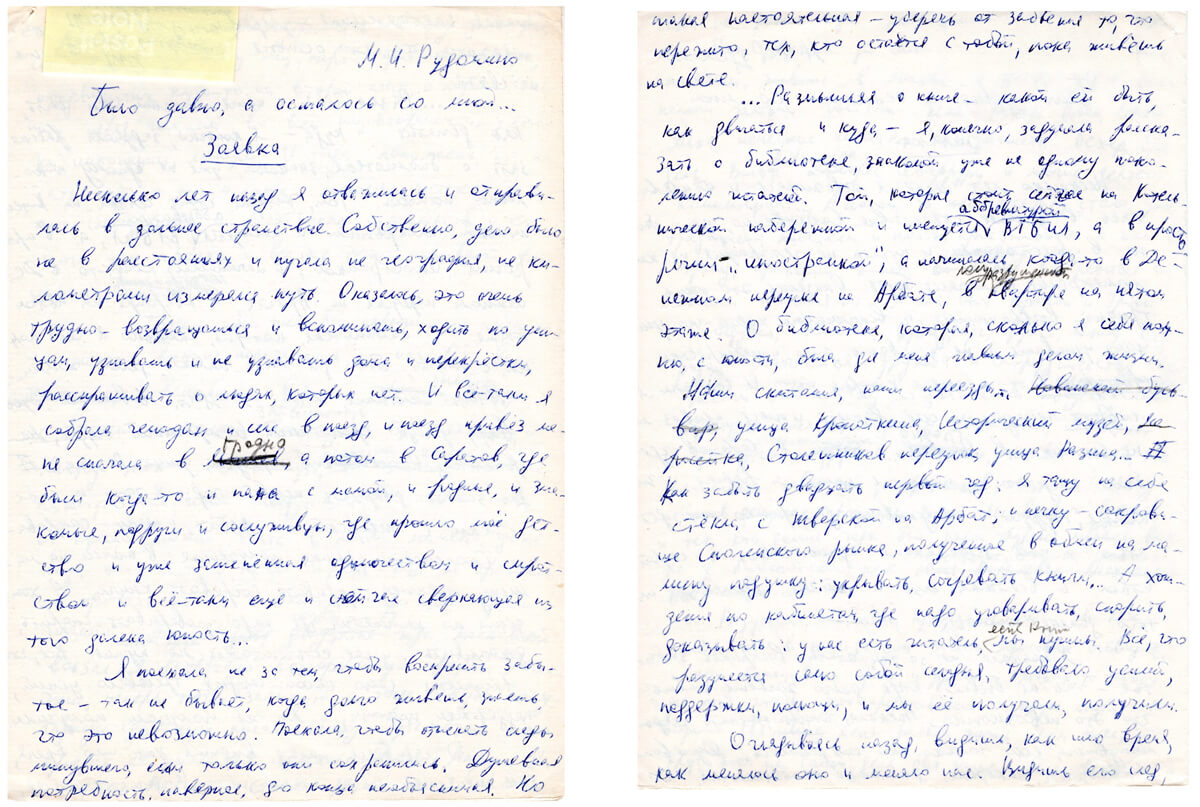 М. И. Рудомино
Было давно, а осталось со мной...
Заявка
Несколько лет назад я отважилась и отправи-
лась в дальнее странствие. Собственно, дело было
не в расстояниях и пугала не география, не ки-
лометрами измерялся путь. Оказалось, это очень
трудно – возвращаться и вспоминать, ходить по ули-
цам, узнавать и не узнавать дома и перекрёстки,
расспрашивать о людях, которых нет. И всё-таки я
собрала чемодан и села в поезд, и поезд привёз ме-
ня сначала в Гродно, а потом в Саратов, где
были когда-то и папа с мамой, и родные, и зна-
комые, подруги и сослуживцы, где прошло моё дет-
ство и уже затенённая одиночеством и сирот-
ством и всё-таки ещё и сейчас сверкающая из
того далека юность...
Я поехала не за тем, чтобы воскресить забы-
тое – так не бывает, когда долго живёшь, знаешь,
что это невозможно. Поехала, чтобы отыскать следы
минувшего, если только они сохранились. Душевная
потребность, наверное, до конца необъяснимая. Но
такая настоятельная – уберечь от забвения то, что
пережито, тех, кто остаётся с тобой, пока живёшь
на свете.
... Размышляя о книге – какой ей быть,
как двигаться и куда – я, конечно, задумала расска-
зать о библиотеке, знакомой уже не одному поко-
лению читателей. Той, которая стоит сейчас на Котель-
нической набережной и именуется аббревиатурой ВГБИЛ, а в просто
речии – „иностранкой", а начиналась когда-то в Де-
нежном переулке на Арбате, в полуразрушенной квартире на пятом
этаже. О библиотеке, которая, сколько я себя пом-
ню, с юности, была для меня главным делом жизни.
Наши скитания, наши переезды. Новинский буль-
вар, улица Кропоткина, Исторический музей,
Столешников переулок, улица Разина...
Как забыть двадцать первый год. Я тащу на себе
стёкла с Тверской на Арбат; и печку – сокрови-
ще Смоленского рынка, полученное в обмен на ма-
мину подушку: укрывать, согревать книги... А хож-
дения по кабинетам, где надо уговаривать, спорить,
доказывать: у нас есть читатель, мы нужны. Всё, что
разумеется само собой сегодня, требовало усилий,
поддержки, помощи, и мы её получали, получили.
Оглядываясь назад, видишь, как шло время,
как менялось оно и меняло нас. Видишь его ход,